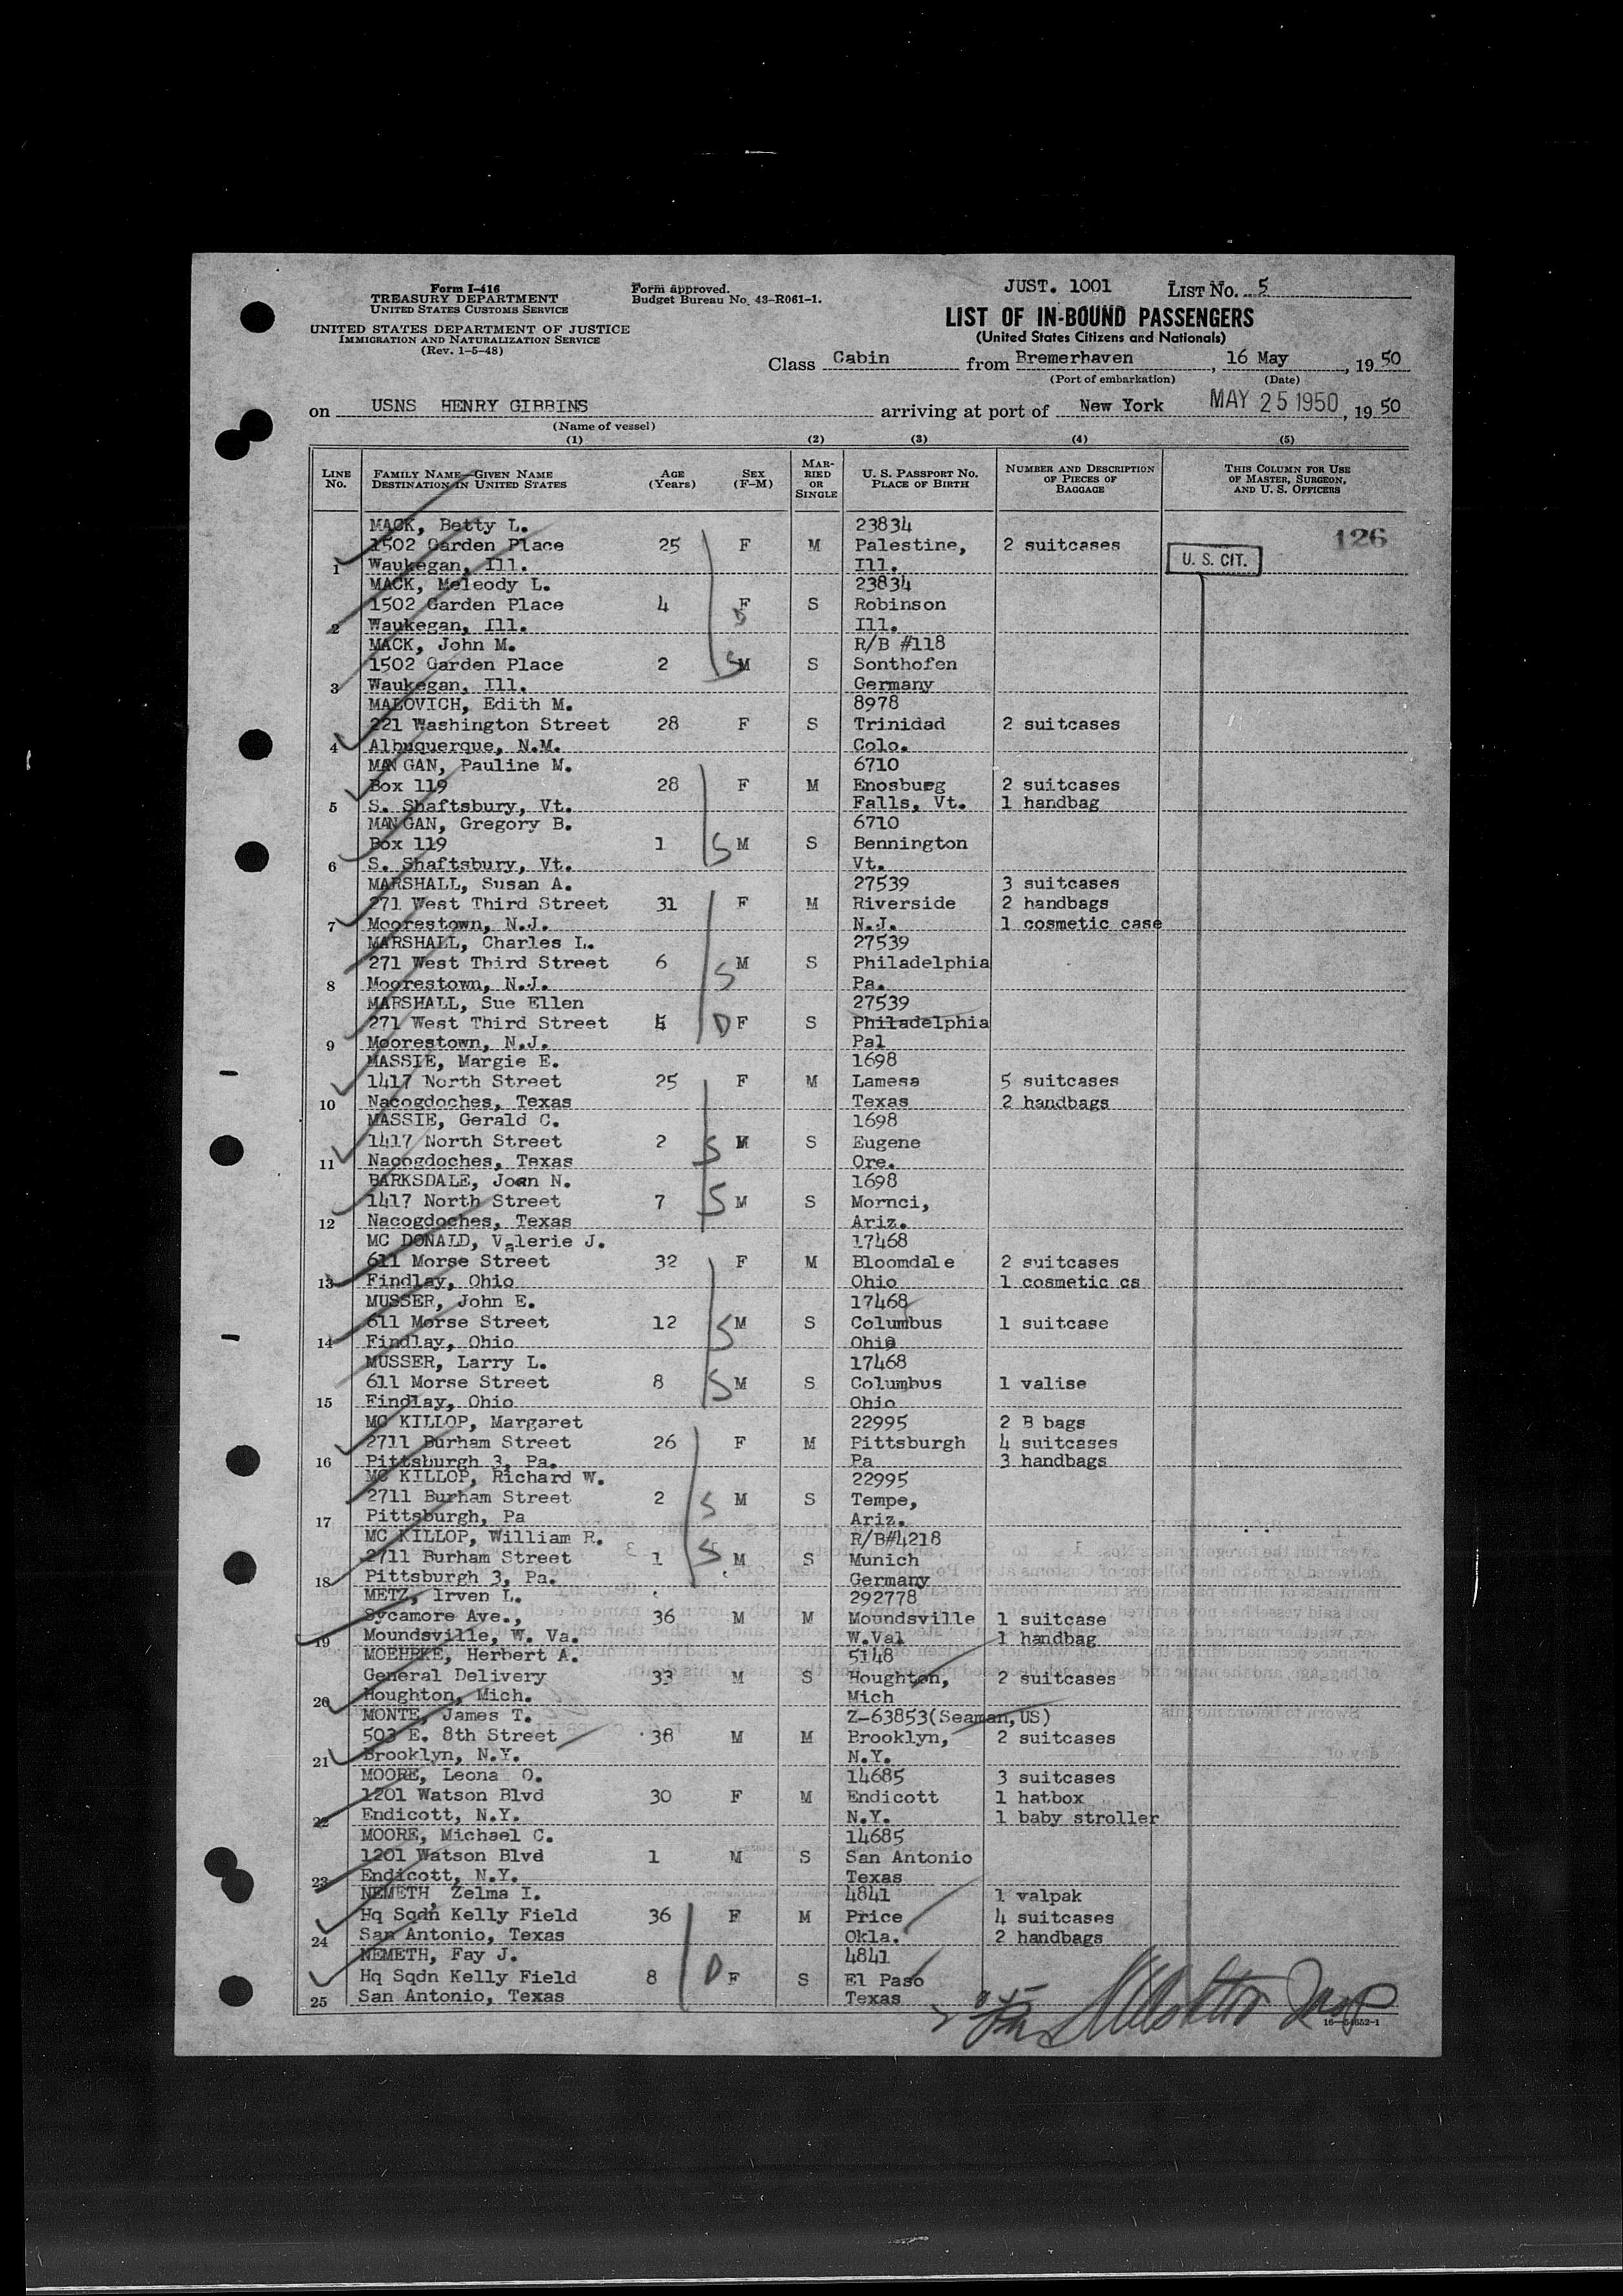 Form I-416
TREASURY DEPARTMENT
UNITED STATES CUSTOMS SERVICE
UNITED STATES DEPARTMENT OF JUSTICE
IMMIGRATION AND NATURALIZATION SERVICE
(Rev. 1-5-48)
Form approved.
Budget Bureau No. 43-R061-1.
JUST. 1001 LIST NO. 5
LIST OF IN-BOUND PASSENGERS
(United States Citizens and Nationals)
Class Cabin from Bremerhaven, 16 May, 1950
(Port of embarkation) (Date)
on USNS HENRY GIBBINS arriving at port of New York MAY 25 1950, 1950
(Name of vessel)
(1) (2) (3) (4) (5)
LINE NO. FAMILY NAME—GIVEN NAME DESTINATION IN UNITED STATES AGE (Years) SEX (F-M) MARRIED OR SINGLE U. S. PASSPORT NO. PLACE OF BIRTH NUMBER AND DESCRIPTION OF PIECES OF BAGGAGE THIS COLUMN FOR USE OF MASTER, SURGEON, AND U. S. OFFICERS
MACK, Betty L. 23834 126
1502 Garden Place 25 F M Palestine, 2 suitcases U. S. CIT.
1 Waukegan, Ill. Ill.
MACK, Meleody L. 23834
1502 Garden Place 4 F S Robinson
2 Waukegan, Ill. D Ill.
MACK, John M. R/B #118
1502 Garden Place 2 S M S Sonthofen
3 Waukegan, Ill. Germany
MALOVICH, Edith M. 8978
221 Washington Street 28 F S Trinidad 2 suitcases
4 Albuquerque, N.M. Colo.
MANGAN, Pauline M. 6710
Box 119 28 F M Enosburg 2 suitcases
5 S. Shaftsbury, Vt. Falls, Vt. 1 handbag
MANGAN, Gregory B. 6710
Box 119 1 S M S Bennington
6 S. Shaftsbury, Vt. Vt.
MARSHALL, Susan A. 27539 3 suitcases
271 West Third Street 31 F M Riverside 2 handbags
7 Moorestown, N.J. N.J. 1 cosmetic case
MARSHALL, Charles L. 27539
271 West Third Street 6 S M S Philadelphia
8 Moorestown, N.J. Pa.
MARSHALL, Sue Ellen 27539
271 West Third Street D F S Philadelphia
9 Moorestown, N.J. Pal
MASSIE, Margie E. 1698
1417 North Street 25 F M Lamesa 5 suitcases
10 Nacogdoches, Texas Texas 2 handbags
MASSIE, Gerald C. 1698
1417 North Street 2 S M S Eugene
11 Nacogdoches, Texas Ore.
BARKSDALE, N. 1698
1417 North Street 7 S M S Mornci,
12 Nacogdoches, Texas Ariz.
MC DONALD, Valerie J. 17468
611 Morse Street 32 F M Bloomdale 2 suitcases
13 Findlay, Ohio Ohio 1 cosmetic cs
MUSSER, John E. 17468
611 Morse Street 12 S M S Columbus 1 suitcase
14 Findlay, Ohio Ohio
MUSSER, Larry L. 17468
611 Morse Street 8 S M S Columbus 1 valise
15 Findlay, Ohio Ohio
MC KILLOP, Margaret 22995 2 B bags
2711 Burham Street 26 F M Pittsburgh 4 suitcases
16 Pittsburgh 3, Pa. Pa 3 handbags
MC KILLOP, Richard W. 22995
2711 Burham Street 2 S M S Tempe,
17 Pittsburgh, Pa Ariz.
MC KILLOP, William R. R/B#4218
2711 Burham Street 1 S M S Munich
18 Pittsburgh 3, Pa. Germany
METZ, Irven L. 292778
Sycamore Ave., 36 M M Moundsville 1 suitcase
19 Moundsville, W. Va. W.Val 1 handbag
MOEHRKE, Herbert A. 5148
General Delivery 33 M S Houghton, 2 suitcases
20 Houghton, Mich. Mich
MONTE, James T. Z-63853(Seaman,US)
503 E. 8th Street 38 M M Brooklyn, 2 suitcases
21 Brooklyn, N.Y. N.Y.
MOORE, Leona O. 14685 3 suitcases
1201 Watson Blvd 30 F M Endicott 1 hatbox
22 Endicott, N.Y. N.Y. 1 baby stroller
MOORE, Michael C. 14685
1201 Watson Blvd 1 M S San Antonio
23 Endicott, N.Y. Texas
NEMETH, Zelma I. 4841 1 valpak
Hq Sqdn Kelly Field 36 F M Price 4 suitcases
24 San Antonio, Texas Okla. 2 handbags
NEMETH, Fay J. 4841
Hq Sqdn Kelly Field 8 D F S El Paso
25 San Antonio, Texas Texas